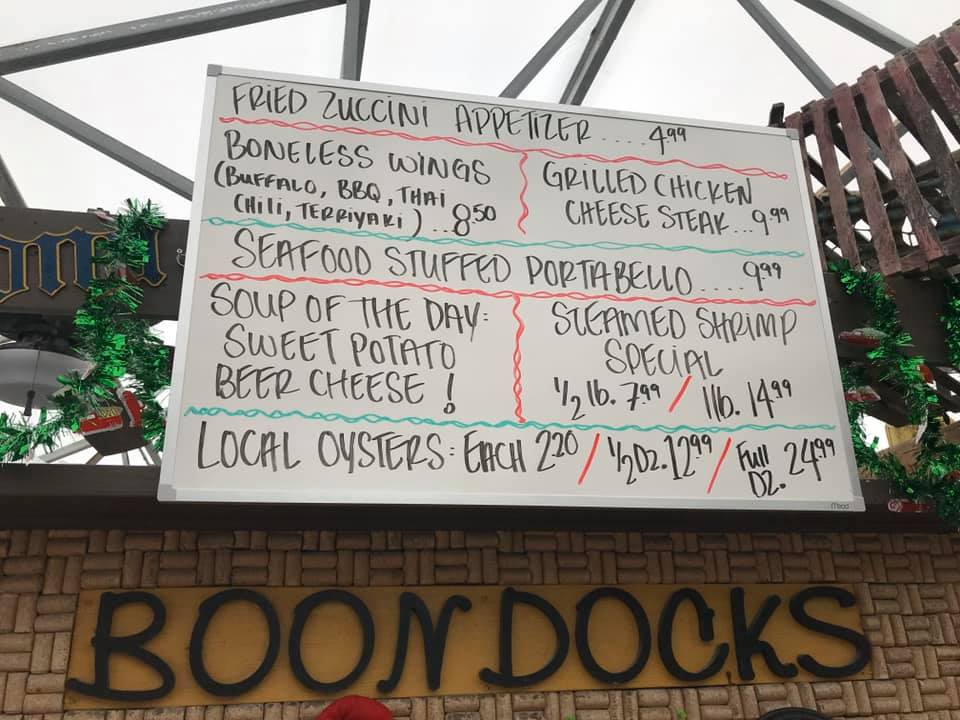 FRIED ZUCCINI APPETIZER .... 4.99
BONELESS WINGS
(BUFFALO, BBQ, THAI
CHILI, TERRIYAKI) .. 8.50
GRILLED CHICKEN
CHEESE STEAK... 9.99
SEAFOOD STUFFED PORTABELLO ..... 9.99
SOUP OF THE DAY:
SWEET POTATO
BEER CHEESE!
STEAMED SHRIMP
SPECIAL
1/2 lb. 7.99 / 1 lb. 14.99
LOCAL OYSTERS: EACH 2.20 / 1/2 DZ. 12.99 / Full DZ. 24.99
Mead
BOONDOCKS